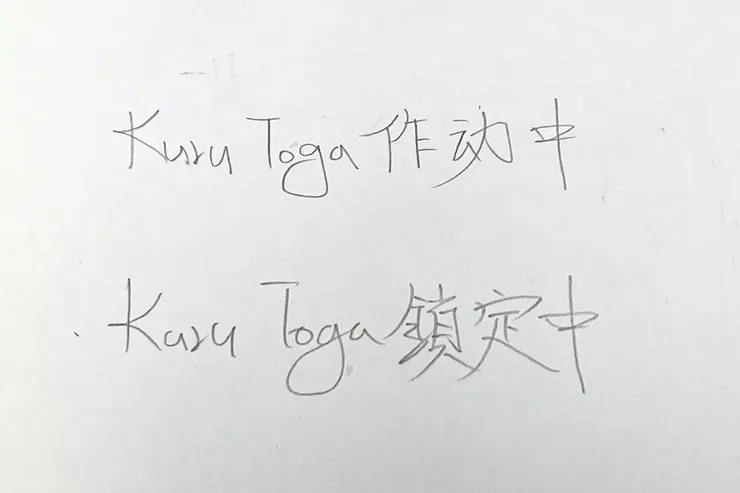 Kuru Toga 作动中
Kuru Toga 鎖定中